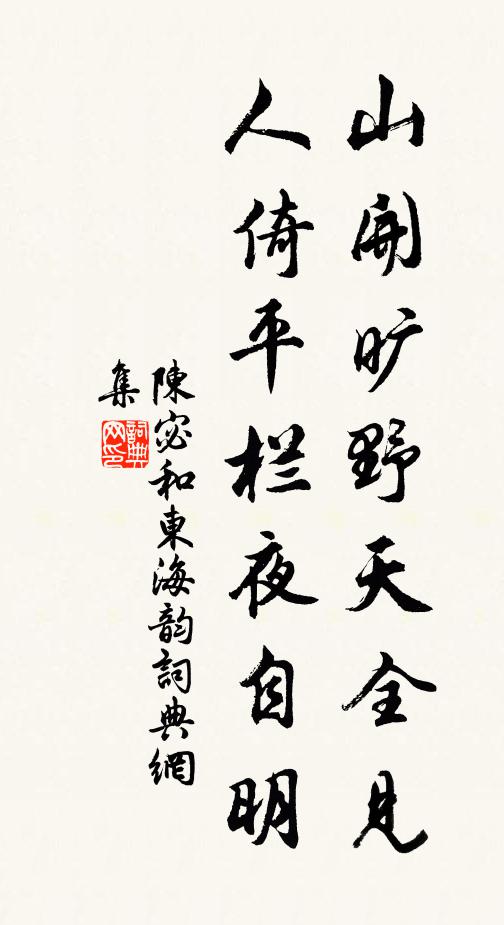 山開旷野天全見
人倚平栏夜自明
陳宓和東海韵詞典網
集
詞典
网印